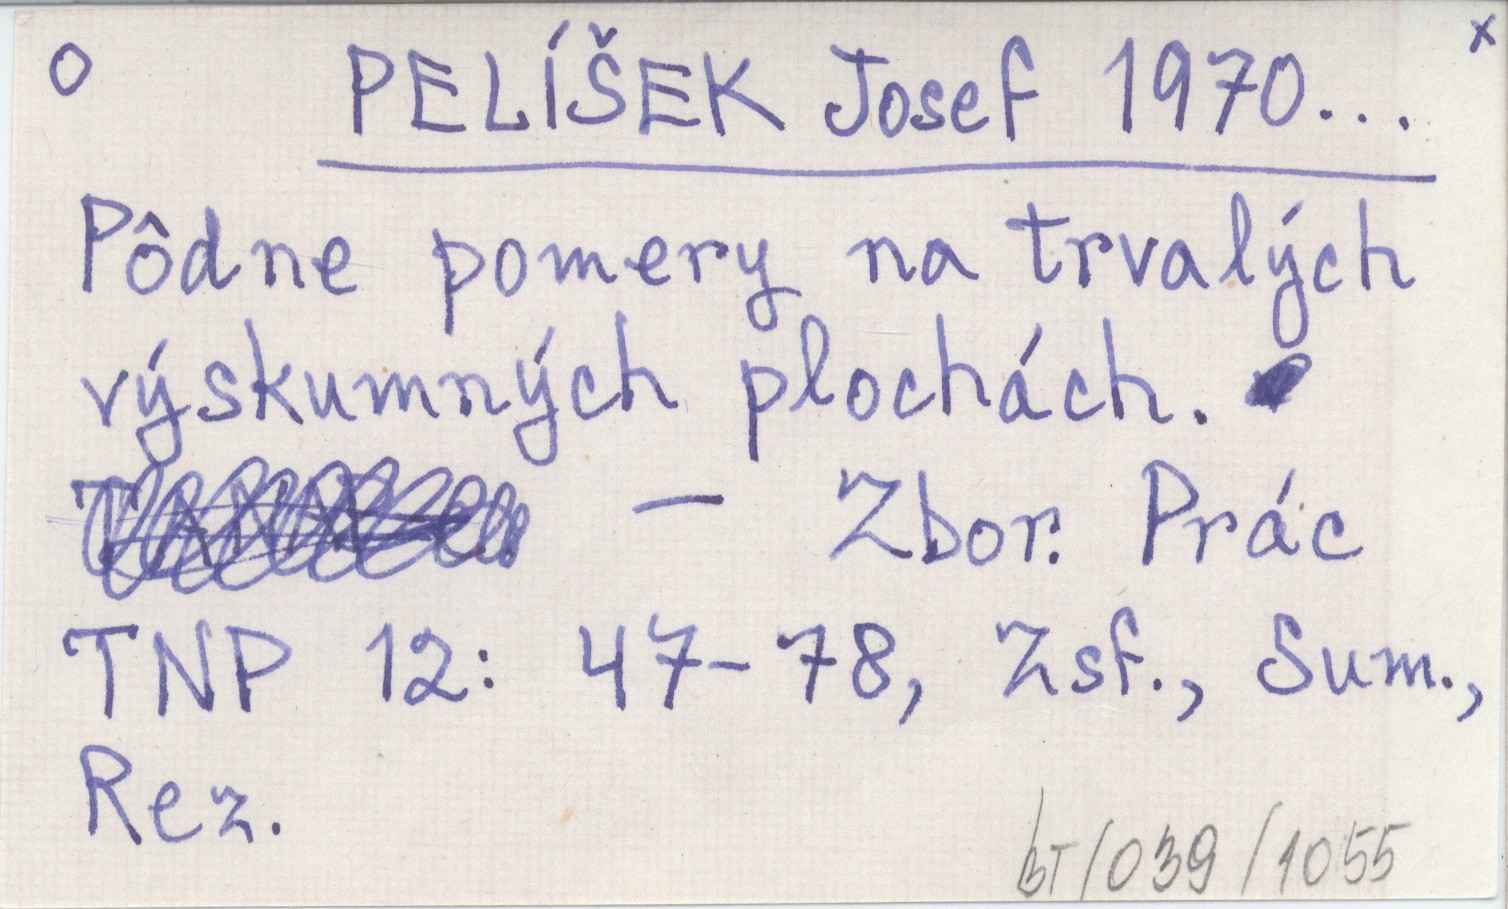 O PELÍŠEK Josef 1970... x
Pôdne pomery na trvalých
výskumných plochách.
— Zbor. Prác
TNP 12: 47-78, Zsf., Sum.,
Rez.
bT/039/1055